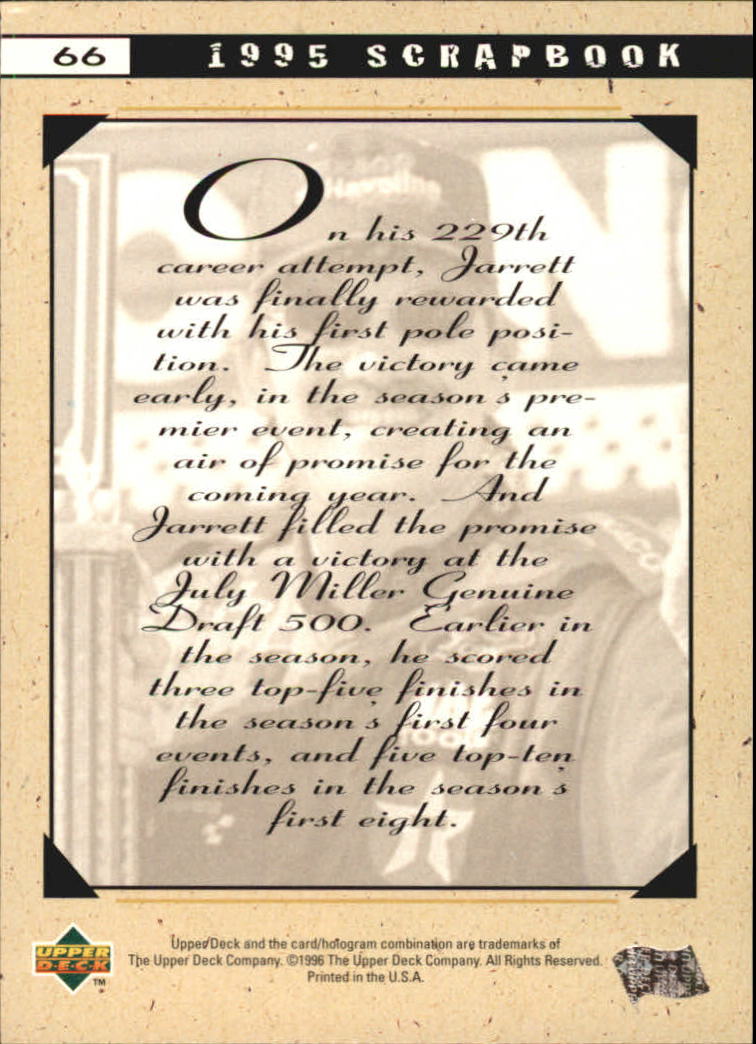 66 1995 SCRAPBOOK
Havoline
On his 229th
career attempt, Jarrett
was finally rewarded
with his first pole posi-
tion. The victory came
early, in the season's pre-
mier event, creating an
air of promise for the
coming year. And
Jarrett filled the promise
with a victory at the
July Miller Genuine
Draft 500. Earlier in
the season, he scored
three top-five finishes in
the season's first four
events, and five top-ten
finishes in the season's
first eight.
UPPER
DECK
TM
Upper Deck and the card/hologram combination are trademarks of
The Upper Deck Company. ©1996 The Upper Deck Company. All Rights Reserved.
Printed in the U.S.A.